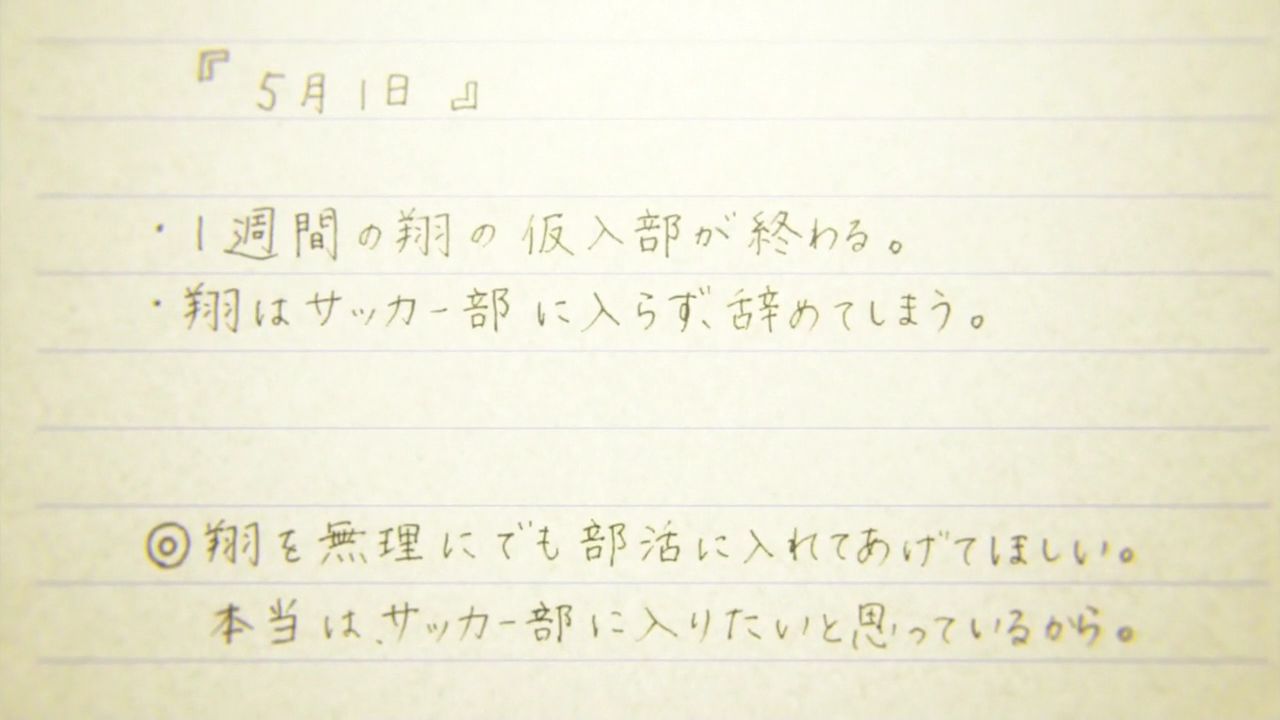 『5月1日』
・1週間の翔の仮入部が終わる。
・翔はサッカー部に入らず、辞めてしまう。
◎翔を無理にでも部活に入れてあげてほしい。
本当は、サッカー部に入りたいと思っているから。